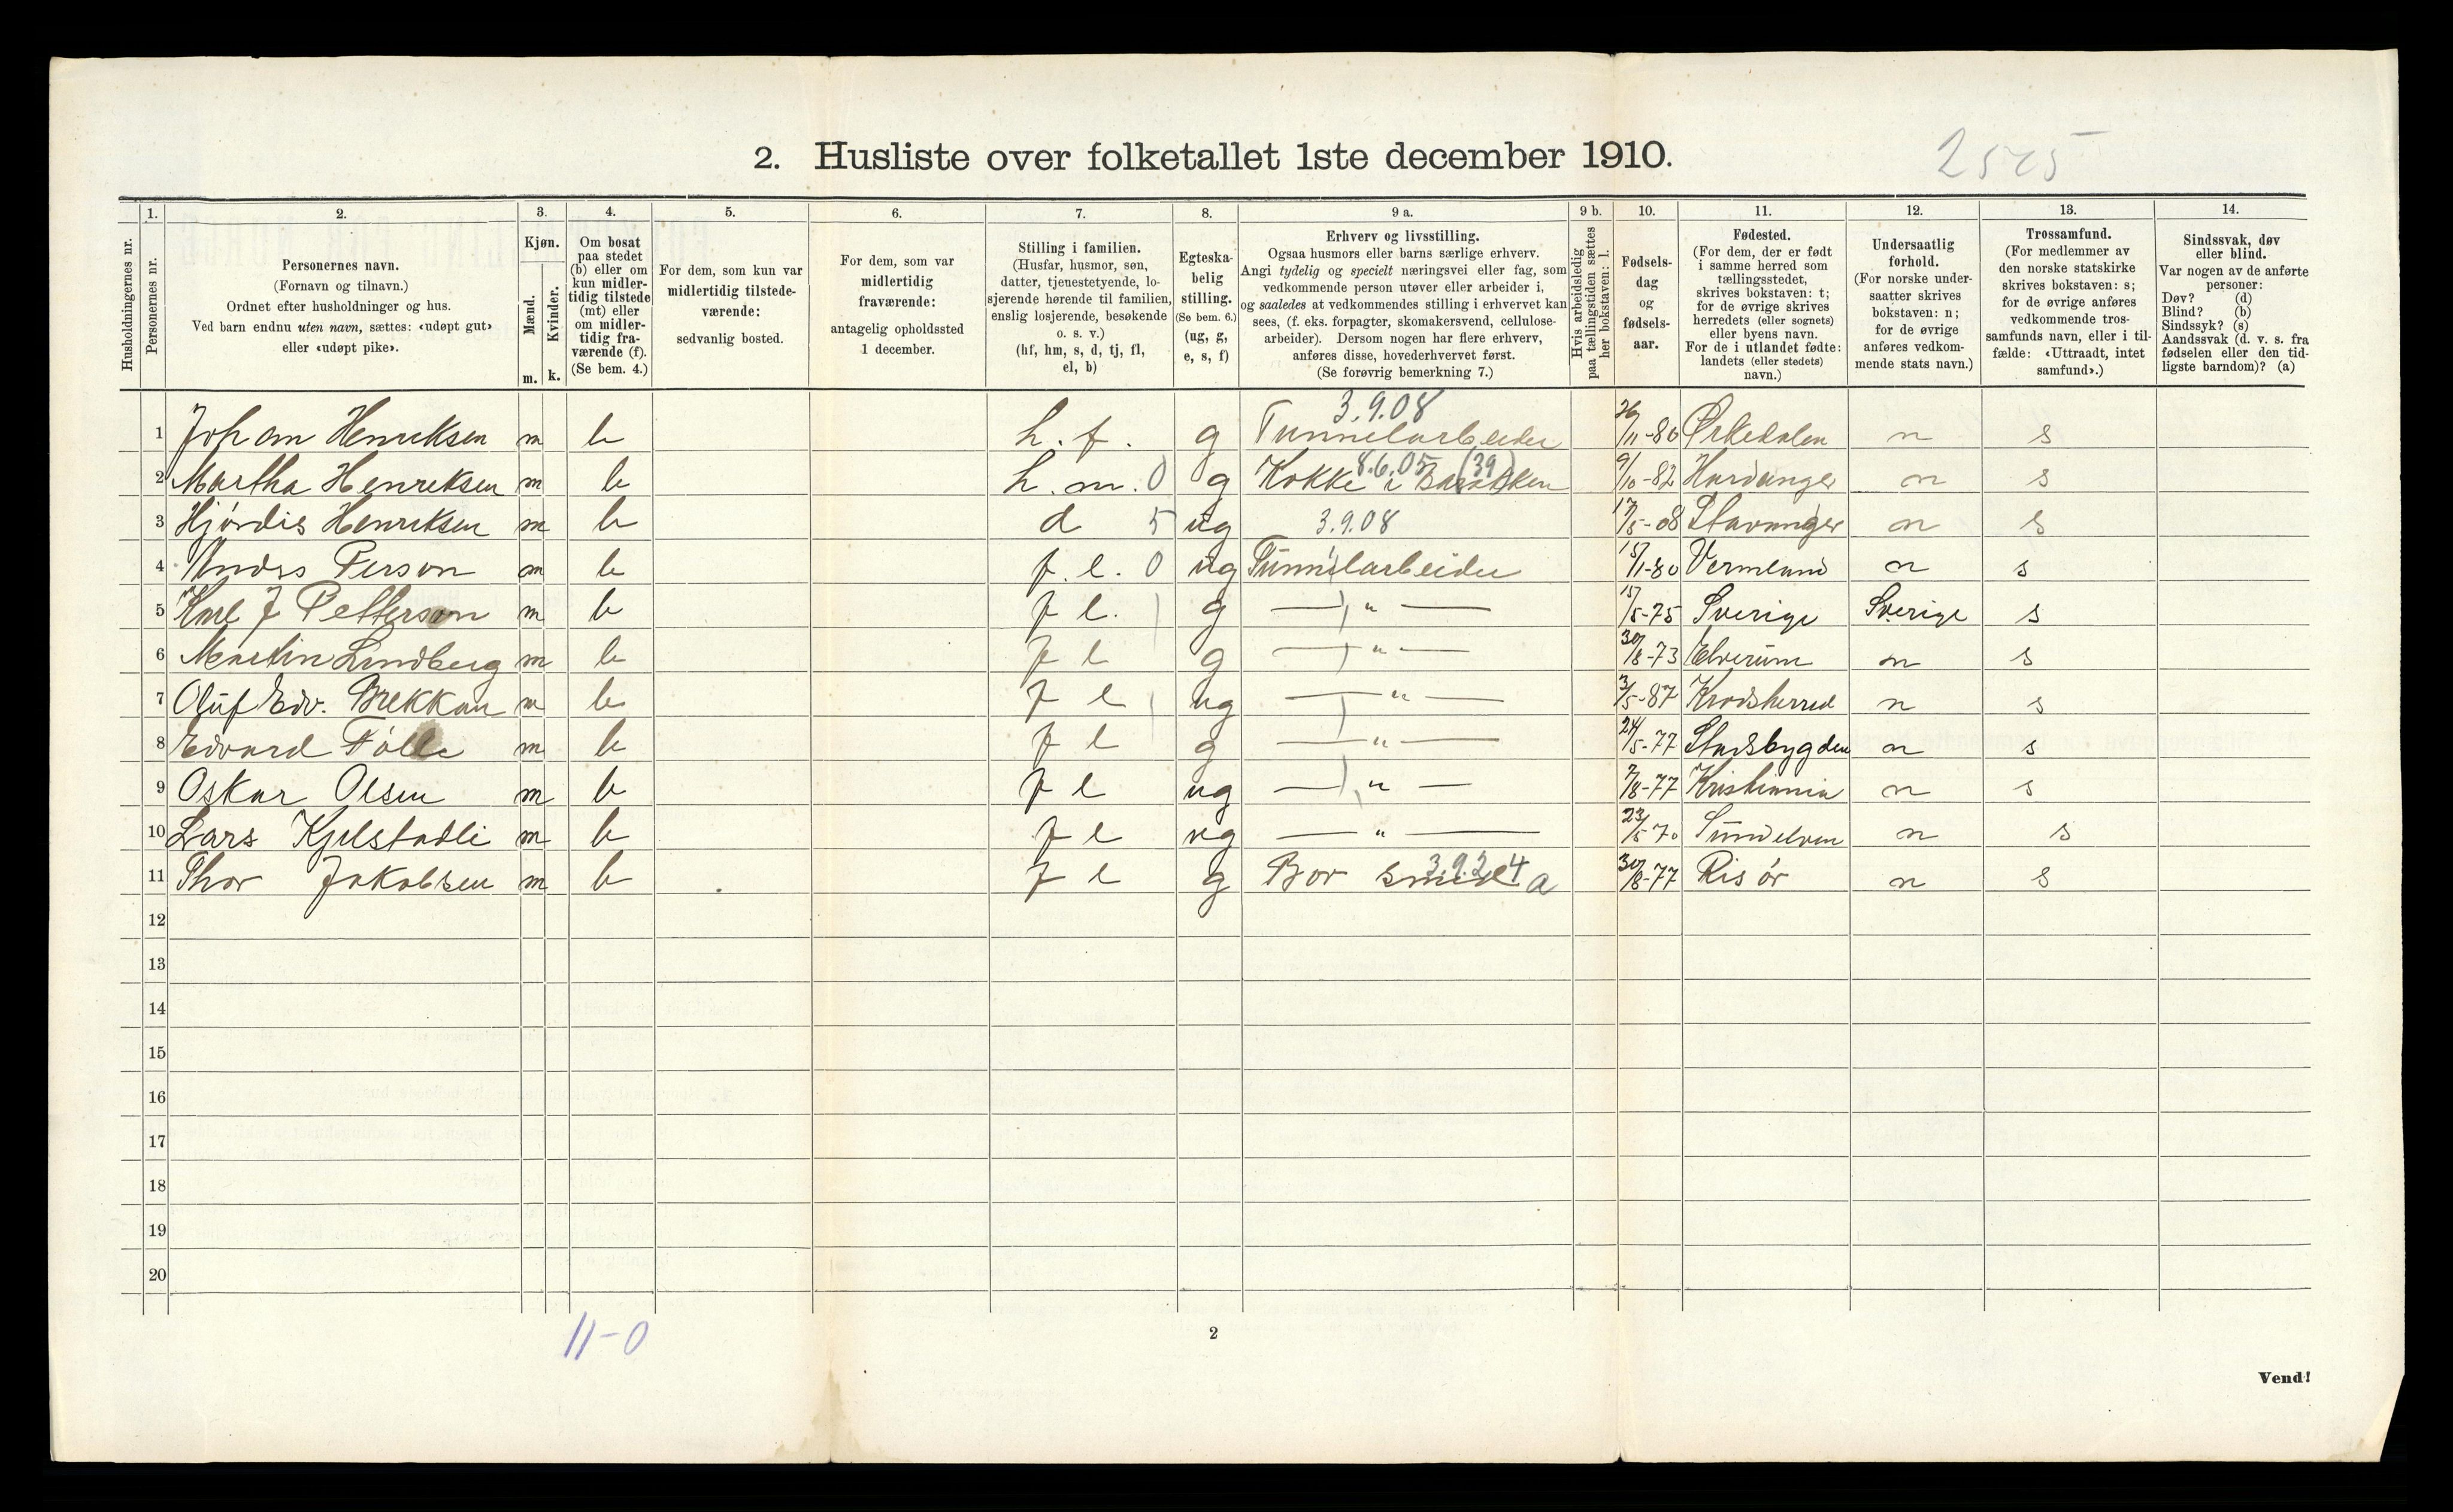 2. Husliste over folketallet 1ste december 1910.
2525
Husholdningernes nr.
1. Personernes nr.
2. Personernes navn. (Fornavn og tilnavn.) Ordnet efter husholdninger og hus. Ved barn endnu uten navn, sættes: «udøpt gut» eller «udøpt pike».
3. Kjøn. Mænd. m. Kvinder. k.
4. Om bosat paa stedet (b) eller om kun midlertidig tilstede (mt) eller om midlertidig fraværende (f). (Se bem. 4.)
5. For dem, som kun var midlertidig tilstedeværende: sedvanlig bosted.
6. For dem, som var midlertidig fraværende: antagelig opholdssted 1 december.
7. Stilling i familien. (Husfar, husmor, søn, datter, tjenestetyende, losjerende hørende til familien, enslig losjerende, besøkende o. s. v.) (hf, hm, s, d, tj, fl, el, b)
8. Egteskabelig stilling. (Se bem. 6.) (ug, g, e, s, f)
9 a. Erhverv og livsstilling. Ogsaa husmors eller barns særlige erhverv. Angi tydelig og specielt næringsvei eller fag, som vedkommende person utøver eller arbeider i, og saaledes at vedkommendes stilling i erhvervet kan sees, (f. eks. forpagter, skomakersvend, cellulosearbeider). Dersom nogen har flere erhverv, anføres disse, hovederhvervet først. (Se forøvrig bemerkning 7.)
9 b. Hvis arbeidsledig paa tællingstiden sættes her bokstaven: l.
10. Fødselsdag og fødselsaar.
11. Fødested. (For dem, der er født i samme herred som tællingsstedet, skrives bokstaven: t; for de øvrige skrives herredets (eller sognets) eller byens navn. For de i utlandet fødte: landets (eller stedets) navn.)
12. Undersaatlig forhold. (For norske undersaatter skrives bokstaven: n; for de øvrige anføres vedkommende stats navn.)
13. Trossamfund. (For medlemmer av den norske statskirke skrives bokstaven: s; for de øvrige anføres vedkommende trossamfunds navn, eller i tilfælde: «Uttraadt, intet samfund».)
14. Sindssvak, døv eller blind. Var nogen av de anførte personer: Døv? (d) Blind? (b) Sindssyk? (s) Aandssvak (d. v. s. fra fødselen eller den tidligste barndom)? (a)
3.9.08
1 Johan Henriksen m b h. f. g Tunnelarbeider 26/11-80 Ørkedalen n s
2 Martha Henreksen m b h. m. 0 g Kokke i Barakken 8.6.05 (39) 9/10-82 Hardanger n s
3 Hjördis Henriksen m b d 5 ug 3.9.08 17/5-08 Stavanger n s
4 Anders Person m b f. l. 0 ug Tunnelarbeider 15/1-80 Vermland n s
5 Karl J Petterson m b f l. g — " — 15/5-75 Sverige Sverige s
6 Martin Lindberg m b f l g — " — 30/8-73 Elverum n s
7 Oluf Edv. Brekkan m b f l ug — " — 3/5-87 Krodsherred n s
8 Edvard Fölle m b f l g — " — 24/5-77 Stadsbygden n s
9 Oskar Olsen m b f l ug — " — 7/8-77 Kristiania n s
10 Lars Kjelstadli m b f l ug — " — 23/5 70 Sundelven n s
11 Thor Jakobsen m b f l g Bor smed 3.9.24 a 30/8-77 Risör n s
12
13
14
15
16
17
18
19
20
11-0
2
Vend!